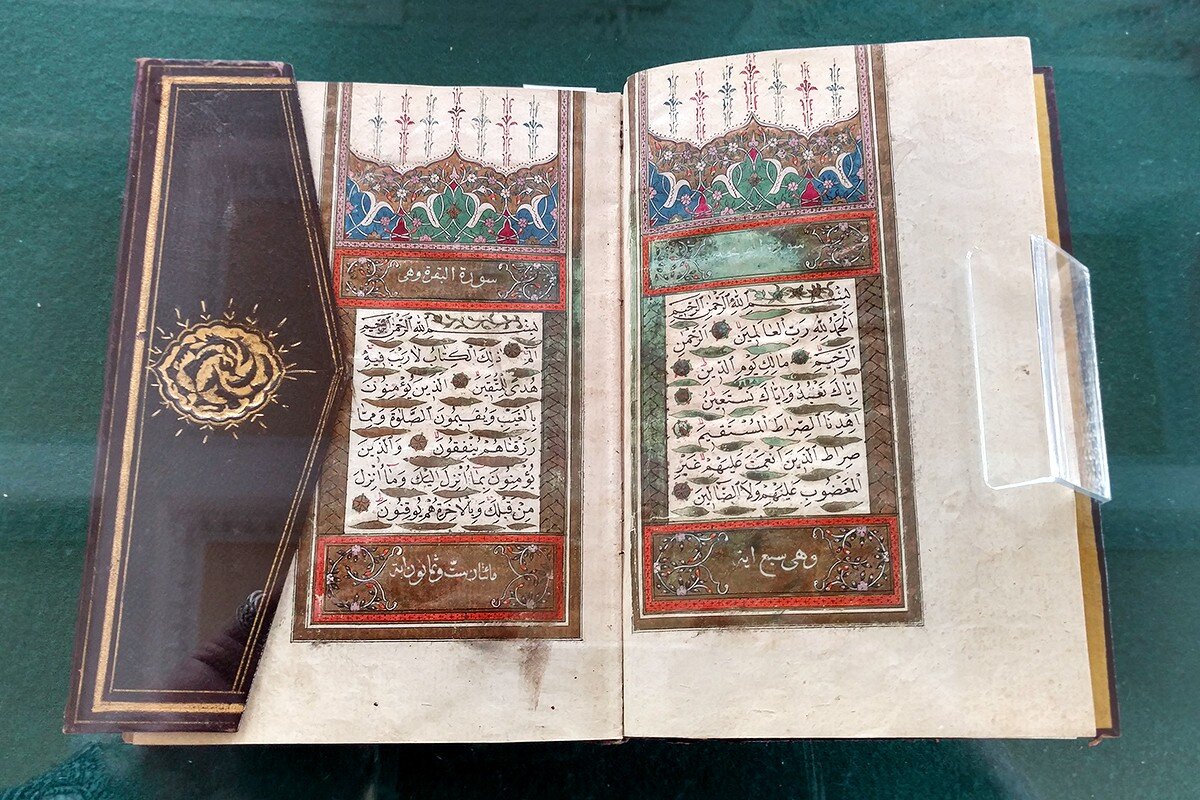 بِسْمِ اللّٰهِ الرَّحْمٰنِ الرَّحِيمِ
اَلْحَمْدُ لِلّٰهِ رَبِّ الْعَالَمِينَ الرَّحْمٰنِ
الرَّحِيمِ مَالِكِ يَوْمِ الدِّينِ
اِيَّاكَ نَعْبُدُ وَاِيَّاكَ نَسْتَعِينُ
اِهْدِنَا الصِّرَاطَ الْمُسْتَقِيمَ
صِرَاطَ الَّذِينَ اَنْعَمْتَ عَلَيْهِمْ غَيْرِ
الْمَغْضُوبِ عَلَيْهِمْ وَلَا الضَّالِّينَ
وهى سبع اية
سورة البقرة وهى
بِسْمِ اللّٰهِ الرَّحْمٰنِ الرَّحِيمِ
الٓمٓ ذٰلِكَ الْكِتَابُ لَا رَيْبَ فِيهِ
هُدًى لِلْمُتَّقِينَ اَلَّذِينَ يُؤْمِنُونَ
بِالْغَيْبِ وَيُقِيمُونَ الصَّلٰوةَ وَمِمَّا
رَزَقْنَاهُمْ يُنْفِقُونَ وَالَّذِينَ
يُؤْمِنُونَ بِمَا اُنْزِلَ اِلَيْكَ وَمَا اُنْزِلَ
مِنْ قَبْلِكَ وَبِالْاٰخِرَةِ هُمْ يُوقِنُونَ
مائتان ست وثمانون اية